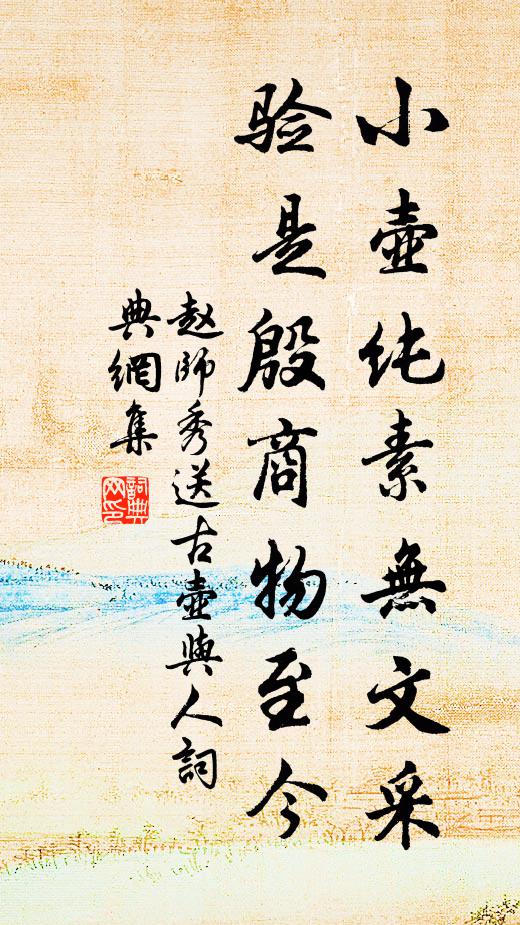 小壺纯素無文采
验是殷商物至今
赵師秀送古壺與人詞
典網集
詞典
网印